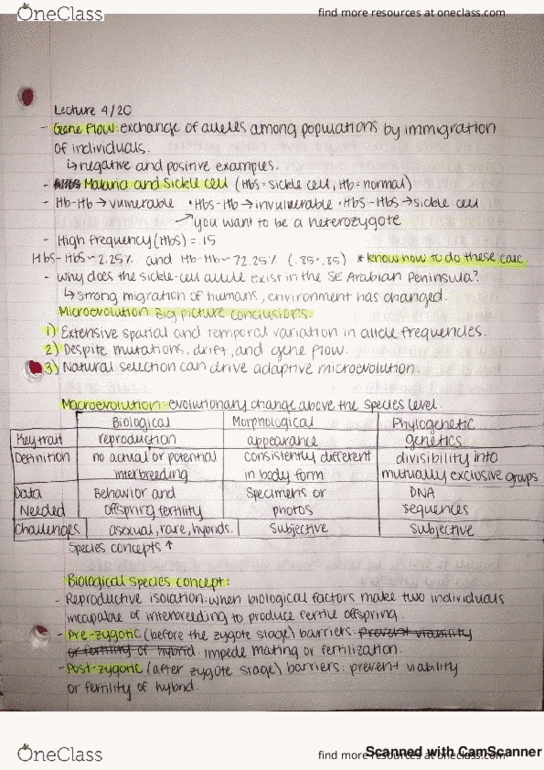 OneClass
find more resources at oneclass.com
Lecture 4/20
- Gene flow: exchange of alleles among populations by immigration
of individuals.
↳ negative and positive examples.
- Malaria and Sickle cell (Hbs = sickle cell, Hb = normal)
- Hb-Hb → vulnerable • Hbs-Hb → invulnerable • Hbs-Hbs → sickle cell
→ you want to be a heterozygote
- High frequency (Hbs) = .15
Hbs-Hbs ~ 2.25% and Hb-Hb ~ 72.25% (.85*.85) * know how to do these calc.
- Why does the sickle-cell allele exist in the SE Arabian Peninsula?
↳ strong migration of humans, environment has changed.
Microevolution Big picture conclusions
1) Extensive spatial and temporal variation in allele frequencies.
2) Despite mutations, drift, and gene flow.
3) Natural selection can drive adaptive microevolution.
Macroevolution - evolutionary change above the species level.
Biological Morphological Phylogenetic
Key trait reproduction appearance genetics
Definition no actual or potential consistently different divisibility into
interbreeding in body form mutually exclusive groups
Data Behavior and Specimens or DNA
Needed offspring fertility photos sequences
Challenges asexual, rare, hybrids. Subjective Subjective
Species concepts ↑
Biological species concept:
- Reproductive isolation: when biological factors make two individuals
incapable of interbreeding to produce fertile offspring.
- Pre-zygotic (before the zygote stage) barriers: prevent viability
or fertility of hybrid. impede mating or fertilization.
- Post-zygotic (after zygote stage) barriers: prevent viability
or fertility of hybrid.
OneClass
find more resources at oneclass.com
Scanned with CamScanner